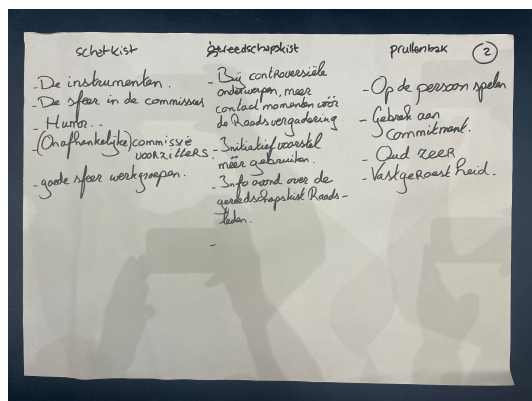 schatkist
- De instrumenten.
- De sfeer in de commissies
- Humor..
- (Onafhankelijke) commissie
voorzitters
- goede sfeer werkgroepen.
gereedschapskist
- Bij controversiële
onderwerpen, meer
contact momenten vóór
de Raadsvergadering
- Initiatiefvoorstel
méér gebruiken.
- Info avond over de
gereedschapskist Raads-
leden.
-
prullenbak
2
- Op de persoon spelen
- Gebrek aan
commitment.
- Oud zeer
- Vastgeroestheid.